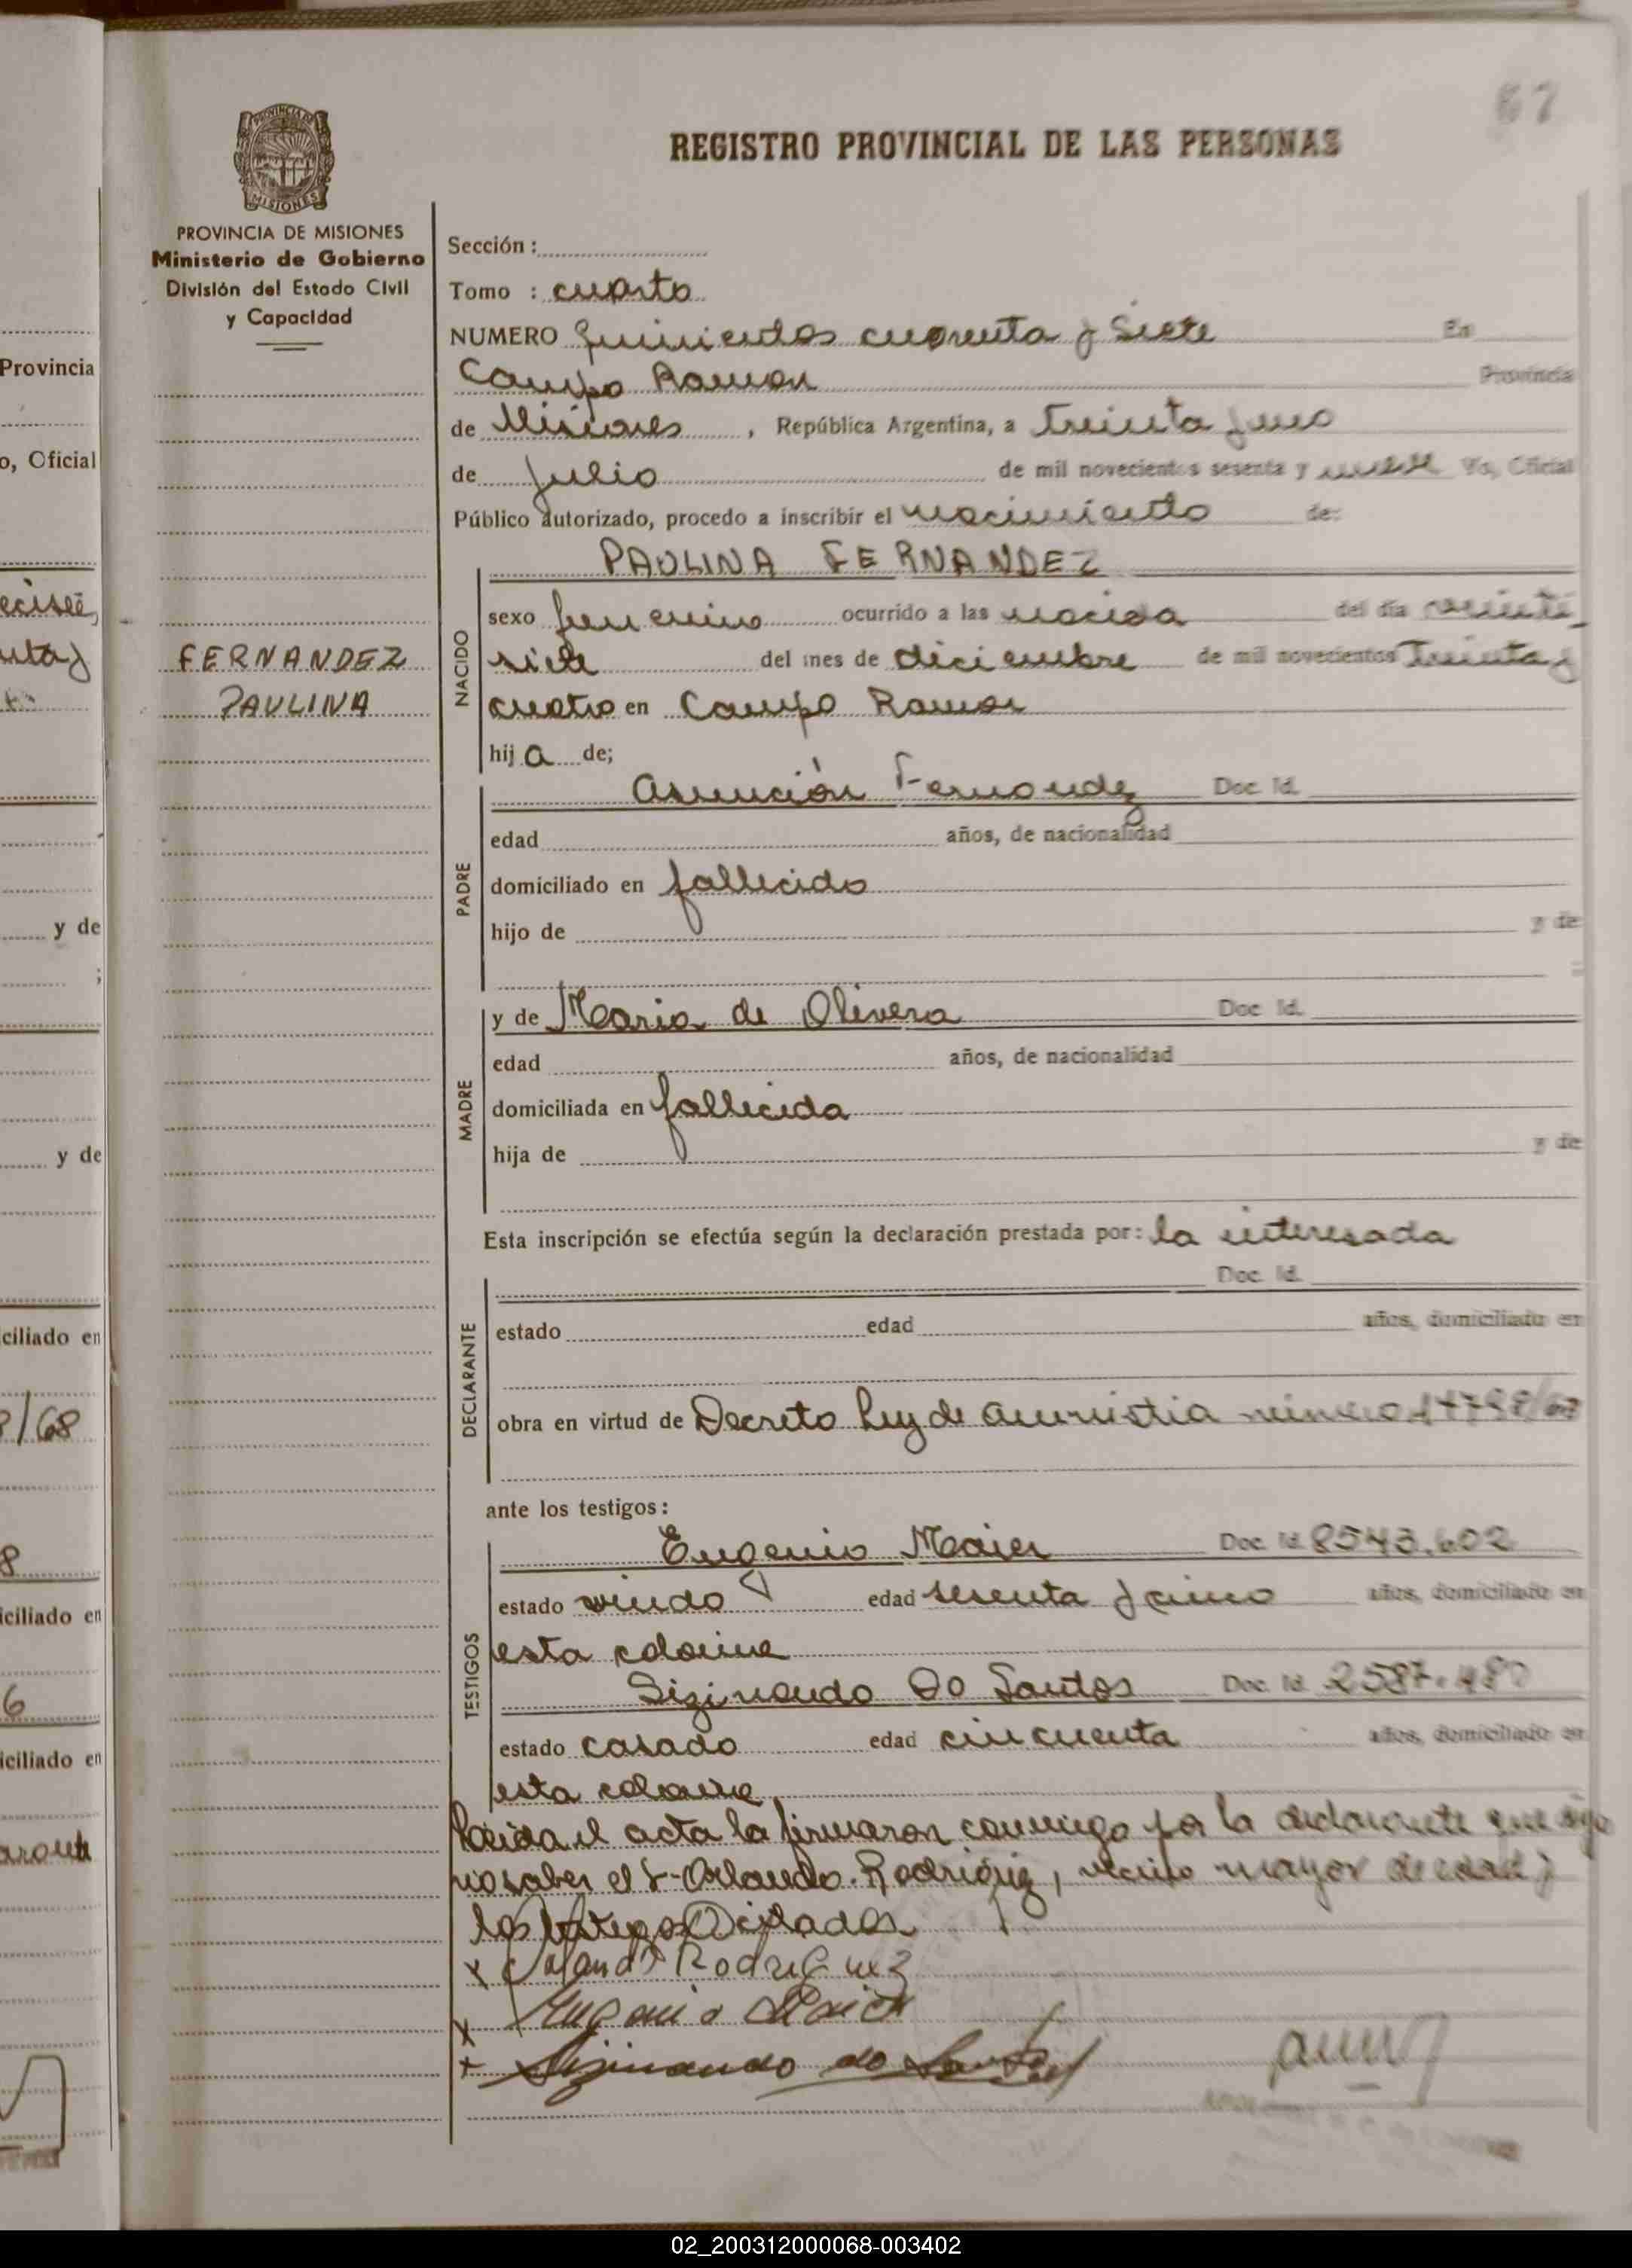 67
REGISTRO PROVINCIAL DE LAS PERSONAS
PROVINCIA DE MISIONES
Ministerio de Gobierno
División del Estado Civil
y Capacidad
FERNANDEZ
PAULINA
Sección :
Tomo : cuarto
NUMERO quinientos cuarenta y siete En
Campo Ramon Provincia
de Misiones , República Argentina, a Treinta y uno
de Julio de mil novecientos sesenta y nueve Yo, Oficial
Público autorizado, procedo a inscribir el nacimiento de:
PAULINA FERNANDEZ
NACIDO
sexo femenino ocurrido a las nacida del día veinti
siete del mes de diciembre de mil novecientos Treinta y
cuatro en Campo Ramon
hij a de;
PADRE
Asunción Fernandez Doc. Id.
edad años, de nacionalidad
domiciliado en fallecido
hijo de y de
MADRE
y de Maria de Olivera Doc. Id.
edad años, de nacionalidad
domiciliada en fallecida
hija de y de
Esta inscripción se efectúa según la declaración prestada por: la interesada
DECLARANTE
Doc. Id.
estado edad años, domiciliado en
obra en virtud de Decreto Ley de amnistia número 17798/68
ante los testigos:
TESTIGOS
Eugenio Maier Doc. Id. 8543.602
estado viudo edad sesenta y cinco años, domiciliado en
esta colonia
Sizinando Do Santos Doc. Id. 2587.480
estado casado edad cincuenta años, domiciliado en
esta colonia
el acta la firmaron conmigo por la declarante que dijo
no saber el Sr. Orlando Rodriguez, vecino mayor de edad y
los testigos citados
x Orlando Rodriguez
x Eugenio Maier
x Sizinando do Santos
Provincia
o, Oficial
y de
y de
ciliado en
8/68
8
iciliado en
6
iciliado en
02_200312000068-003402